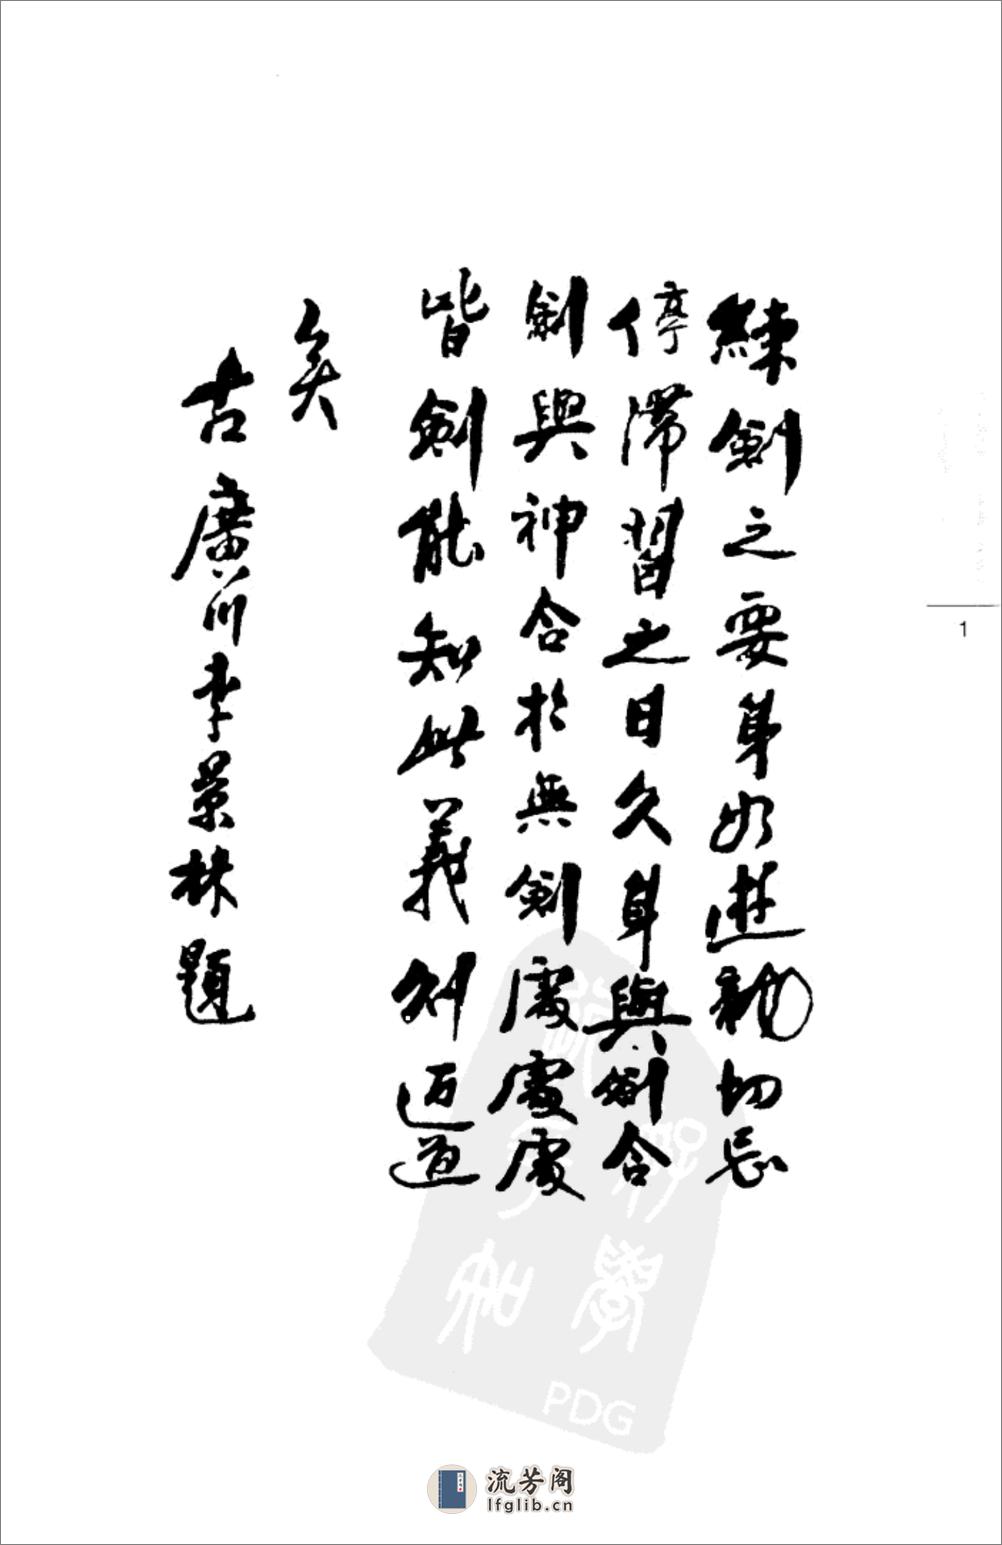 練劍之要身如遊龍切忌
停滯習之日久身與劍合
劍與神合於無劍處處處
皆劍能知此義則近道
矣
古廣川李景林題
1
PDG
流芳阁
lfglib.cn